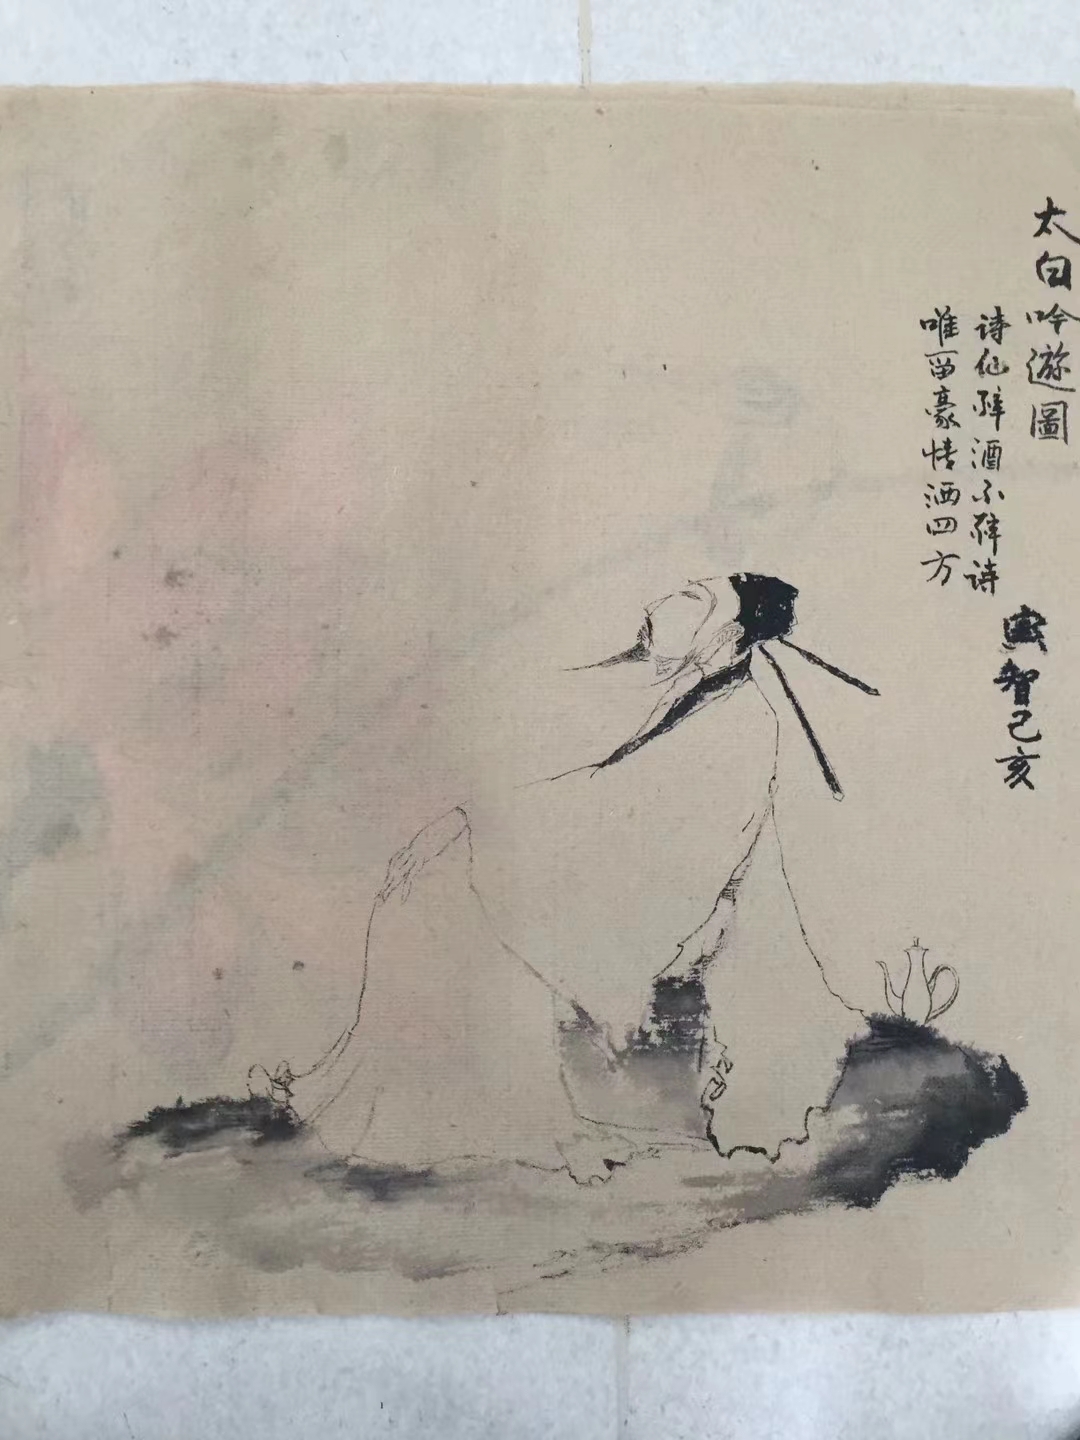 太白吟遊圖
诗仙醉酒不醉诗
唯留豪情洒四方
智己亥